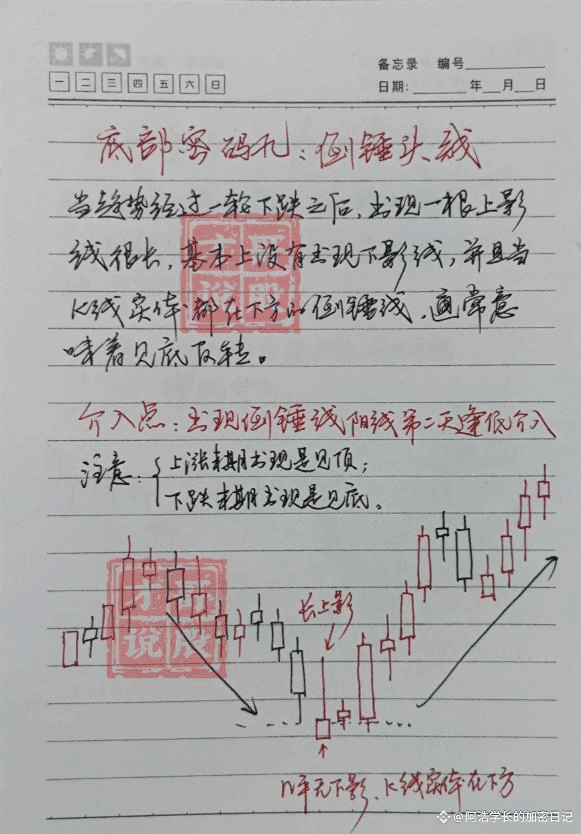 备忘录 编号
一 二 三 四 五 六 日
日期: 年 月 日
底部密码九:倒锤头线
当趋势经过一轮下跌之后,出现一根上影
线很长,基本上没有出现下影线,并且当
K线实体都在下方的倒锤线,通常意
味着见底反转。
介入点:出现倒锤线阳线第二天逢低介入
注意:上涨末期出现是见顶;
下跌末期出现是见底。
长上影
几乎无下影、K线实体在下方
说股
说股
@阿浩学长的加密日记